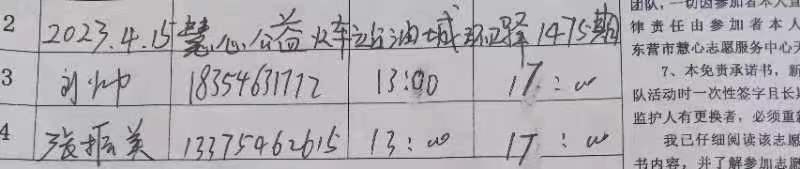 2 2023.4.15慧心公益火车站油城驿 1475期
3 刘帅 18354631712 13:00 17:00
4 张振美 13375462615 13:00 17:00
团队,一切因参加者本人
律责任由参加者本人
东营市慧心志愿服务中心
7、本免责承诺书,新
队活动时一次性签字且长
监护人有更换者,必须重
我已仔细阅读该志愿
书内容,并了解参加志愿